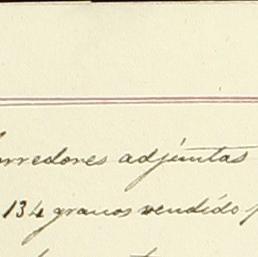 corredores adjuntas
134 granos vendido